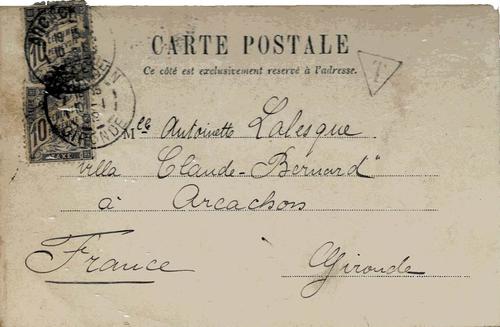 CARTE POSTALE
Ce côté est exclusivement reservé à l'adresse.
T
10
10
TAXE
GIRONDE
Mlle Antoinette Lalesque
villa Claude-Bernard"
à Arcachon
France Gironde